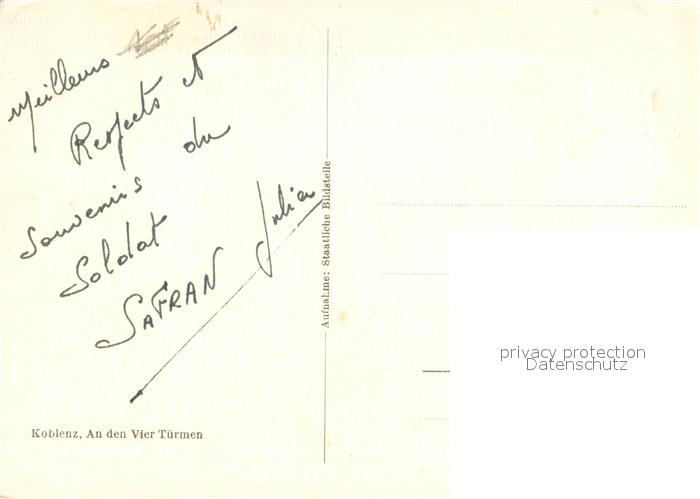 Meilleurs
Respects et
souvenirs du
Soldat
SAFRAN Julien
Koblenz, An den Vier Türmen
Aufnahme: Staatliche Bildstelle
privacy protection
Datenschutz